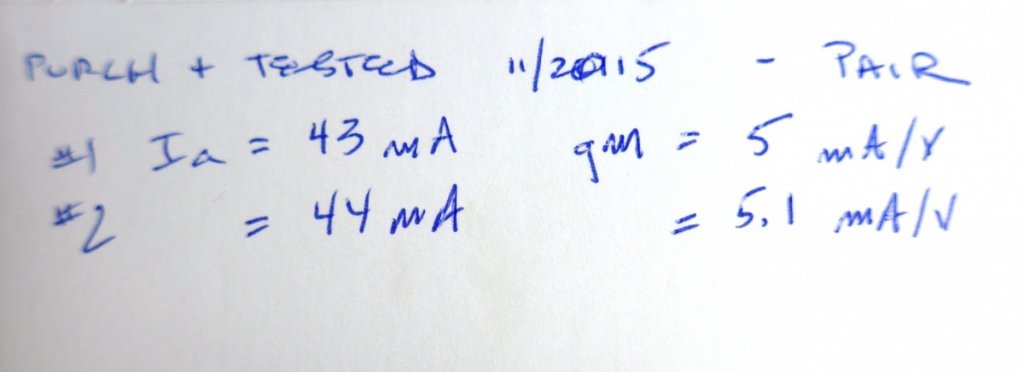 PURCH + TESTED 11/2015 - PAIR
#1 Ia = 43 mA gm = 5 mA/V
#2 = 44 mA = 5.1 mA/V